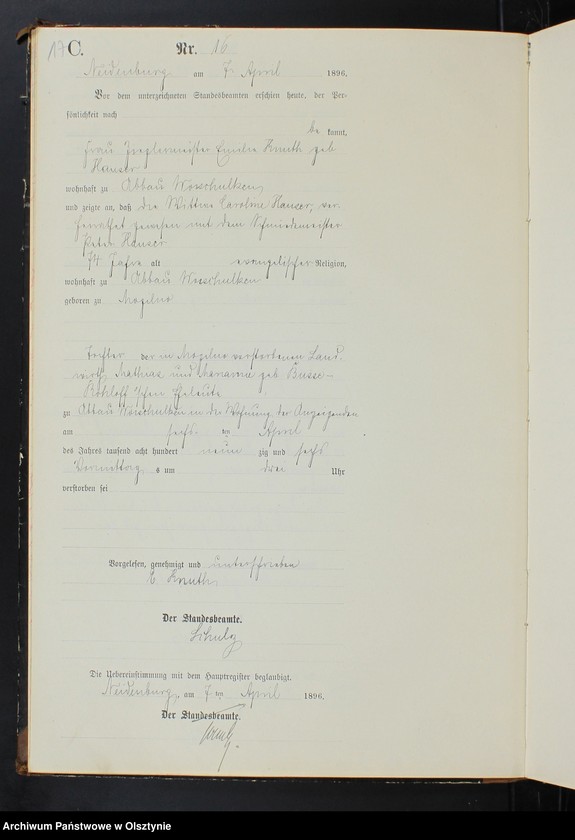 17 C. Nr. 16
Neidenburg am 7. April 1896.
Vor dem unterzeichneten Standesbeamten erschien heute, der Per-
sönlichkeit nach
be kannt,
Frau Emilie Knuth geb.
Hauser
wohnhaft zu Abbau Woischulken
und zeigte an, daß die Wittwe Caroline Hauser, ver-
heirathet gewesen mit dem Schmiedemeister
Peter Hauser
74 Jahre alt evangelischer Religion,
wohnhaft zu Abbau Woischulken
geboren zu Mogilno
Tochter der in Mogilno verstorbenen Land-
wirth Mathias und geb. Busse-
Eheleute
zu Abbau Woischulken in der Wohnung der Anzeigenden
am sechs ten April
des Jahres tausend acht hundert neun zig und sechs
Vormittag s um drei Uhr
verstorben sei
Vorgelesen, genehmigt und unterschrieben
E. Knuth
Der Standesbeamte.
Schulz
Die Uebereinstimmung mit dem Hauptregister beglaubigt.
Neidenburg, am 7 ten April 1896.
Der Standesbeamte.
Archiwum Państwowe w Olsztynie